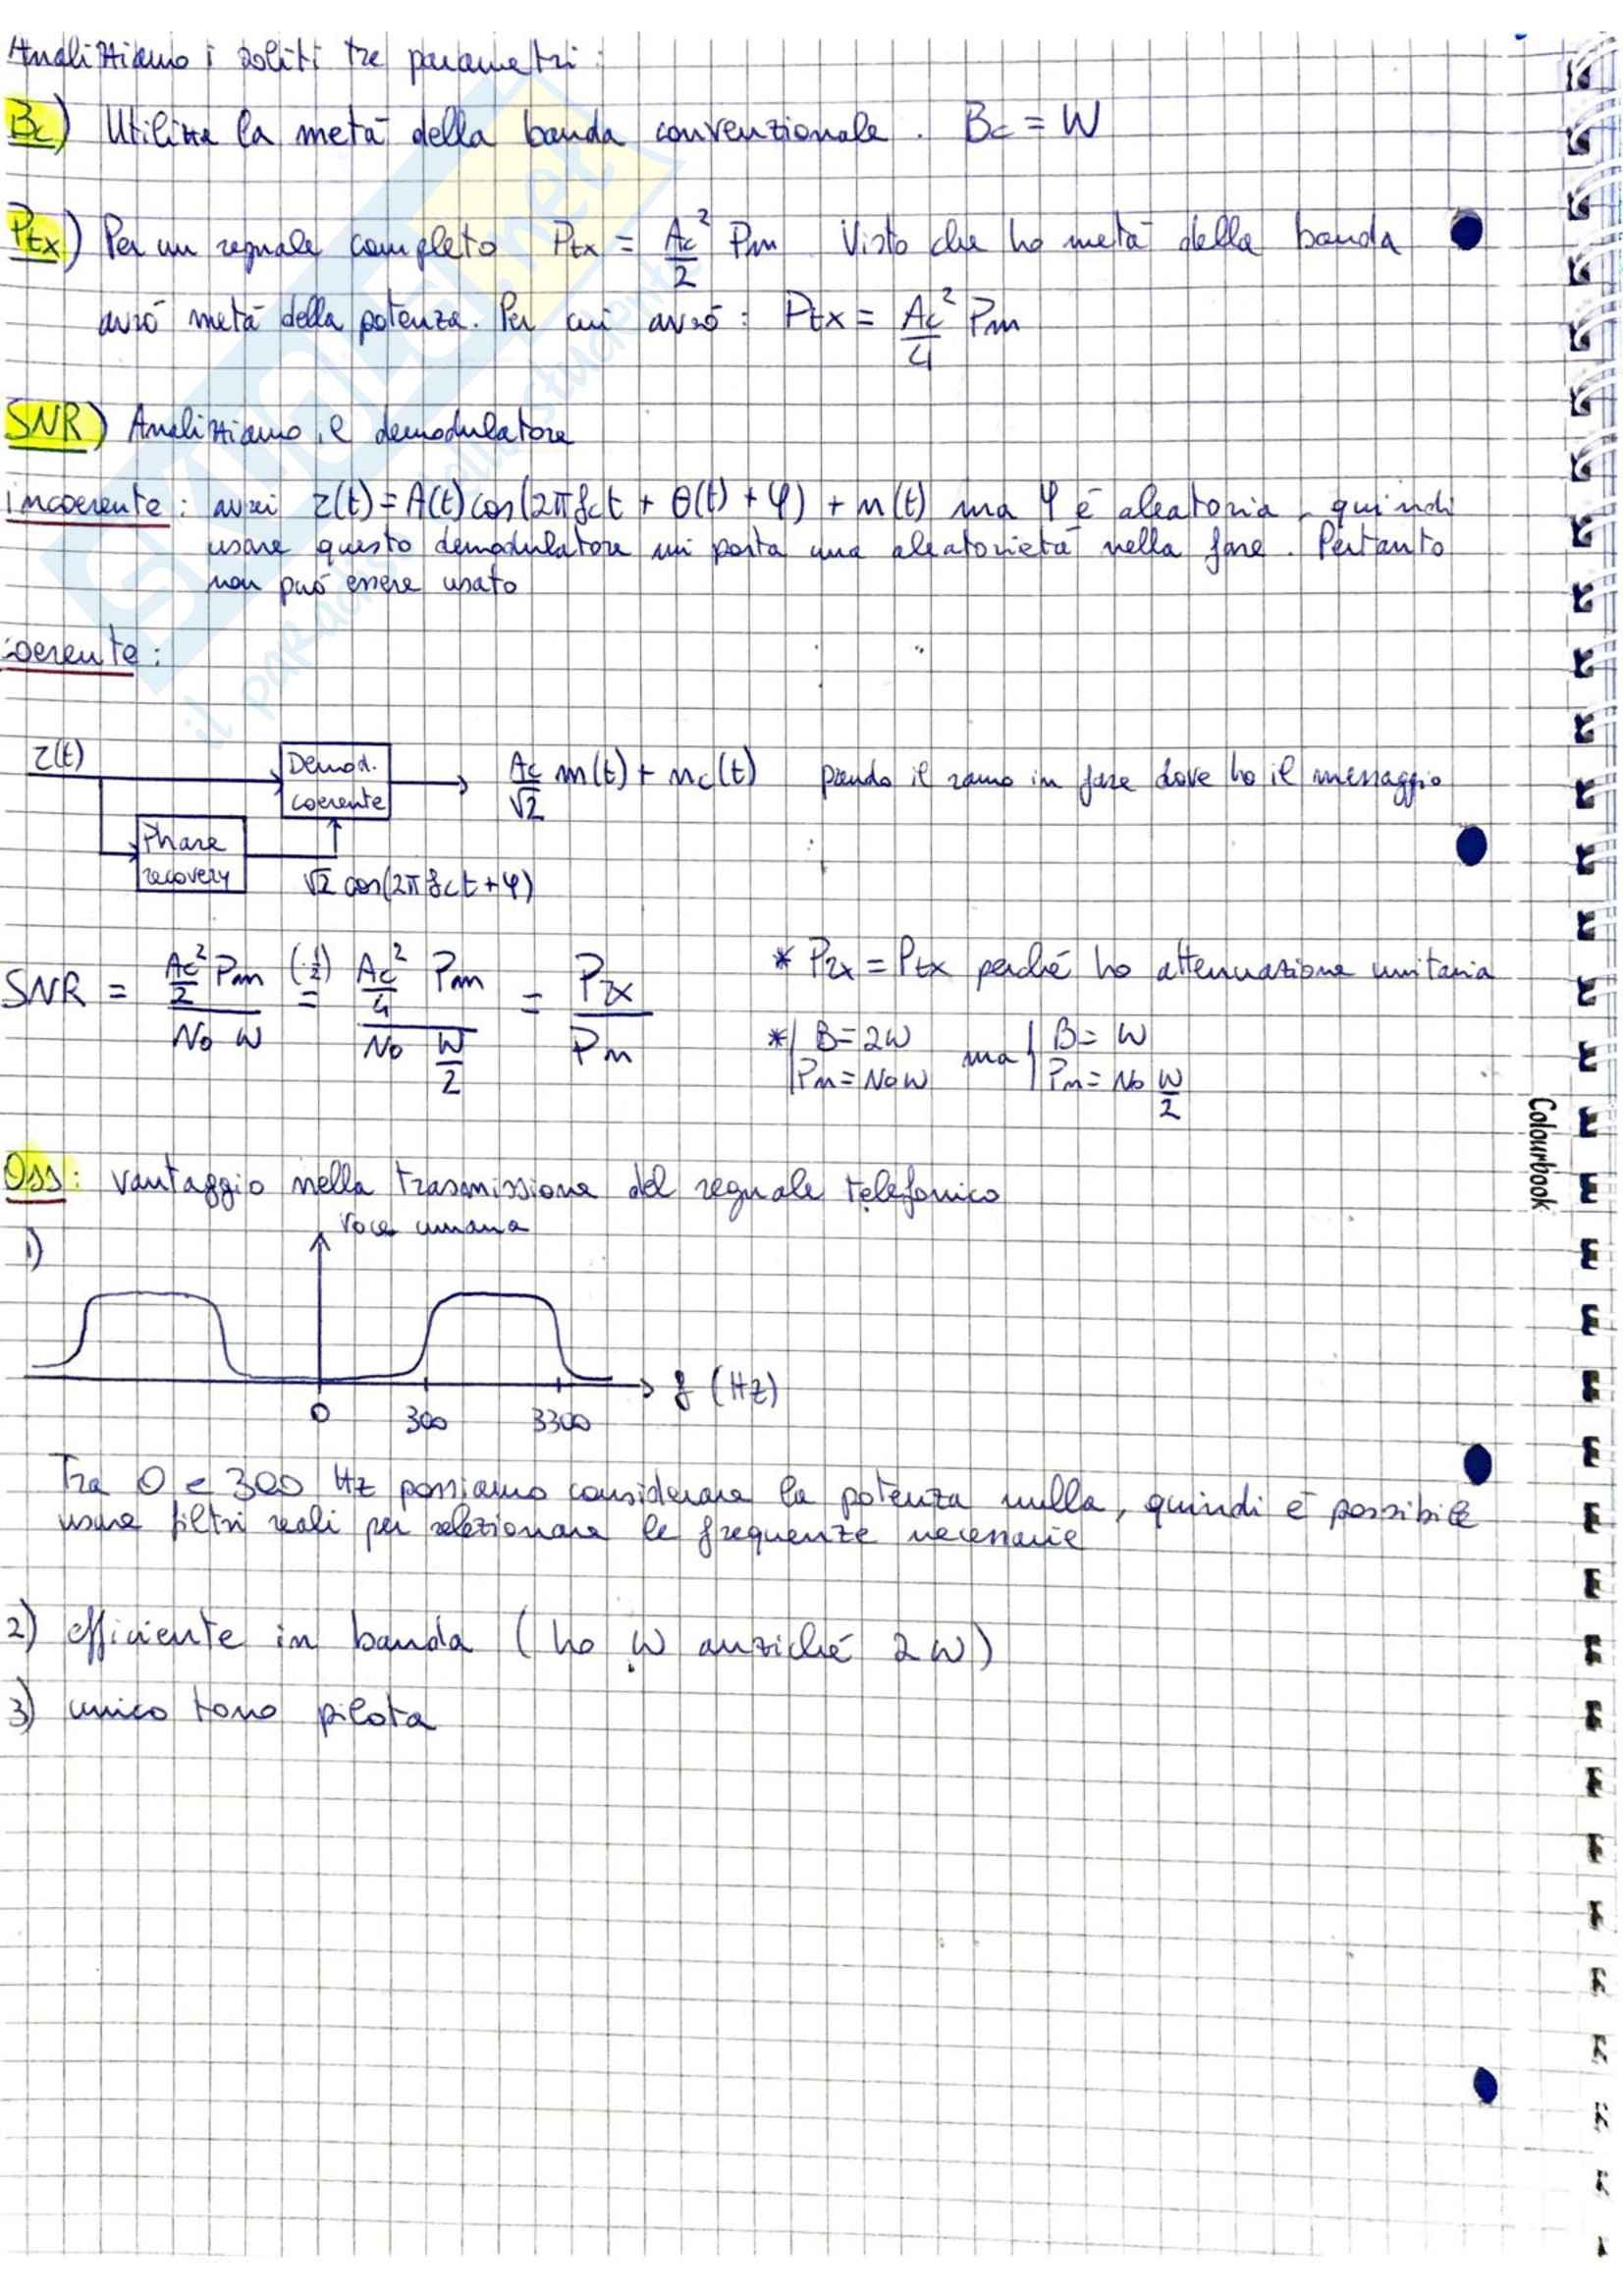 Analizziamo i soliti tre parametri:
Bc) Utilizza la metà della banda convenzionale. Bc = W
Ptx) Per un segnale completo Ptx = Ac²/2 Pm Visto che ho metà della banda
avrò metà della potenza. Per cui avrò: Ptx = Ac²/4 Pm
SNR) Analizziamo il demodulatore
incoerente: avrei r(t) = A(t) cos(2πfct + θ(t) + φ) + n(t) ma φ è aleatoria, quindi
usare questo demodulatore mi porta una aleatorietà nella fase. Pertanto
non può essere usato
coerente:
r(t)
Demod. coerente
Ac/√2 m(t) + nc(t) prendo il ramo in fase dove ho il messaggio
Phase recovery
√2 cos(2πfct + φ)
SNR = (Ac²/2 Pm)/(No W) (·½)= (Ac²/4 Pm)/(No W/2) = Prx/Pn
* Prx = Ptx perché ho attenuazione unitaria
* | B = 2W Pn = NoW ma | B = W Pn = No W/2
Oss: vantaggio nella trasmissione del segnale telefonico
1) voce umana
f (Hz)
0 300 3300
Tra 0 e 300 Hz possiamo considerare la potenza nulla, quindi è possibile
usare filtri reali per selezionare le frequenze necessarie
2) efficiente in banda (ho W anziché 2W)
3) unico tono pilota
Colourbook
SKUOLA.net
il paradiso dello studente